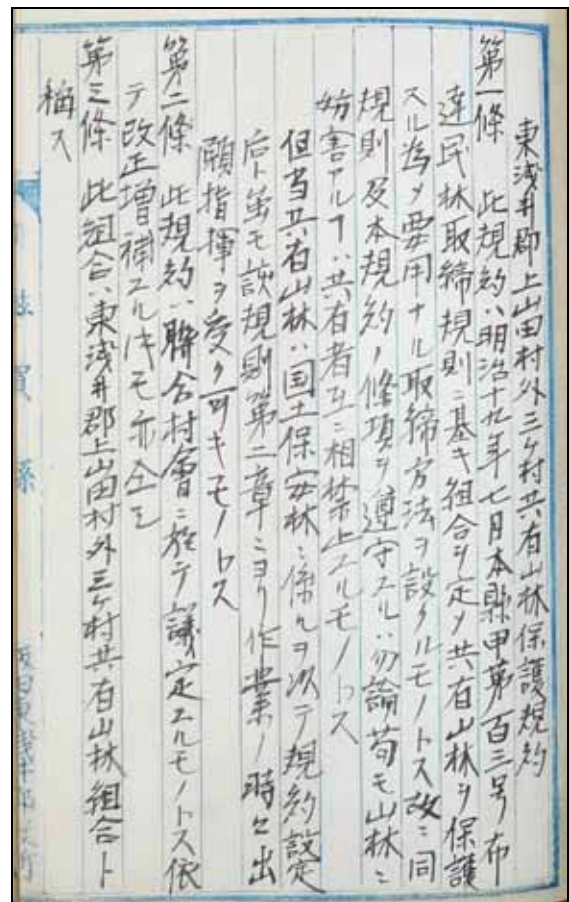 東浅井郡上山田村外三ヶ村共有山林保護規約
第一條 此規約ハ明治十九年七月本縣甲第百三号布
達民林取締規則ニ基キ組合ヲ定メ共有山林ヲ保護
スル為メ要用ナル取締方法ヲ設クルモノトス故ニ同
規則及本規約ノ條項ヲ遵守スルハ勿論苟モ山林ニ
妨害アルヿハ共有者互ニ相禁止スルモノトス
但当共有山林ハ国土保安林ニ係ルヲ以テ規約設定
后ト虽モ該規則第二章ニヨリ作業ノ時々出
願指揮ヲ受ク可キモノトス
第二條 此規約ハ聯合村會ニ於テ議定スルモノトス依
テ改正増補スルトキモ亦仝シ
第三條 此組合ハ東浅井郡上山田村外三ヶ村共有山林組合ト
稱ス